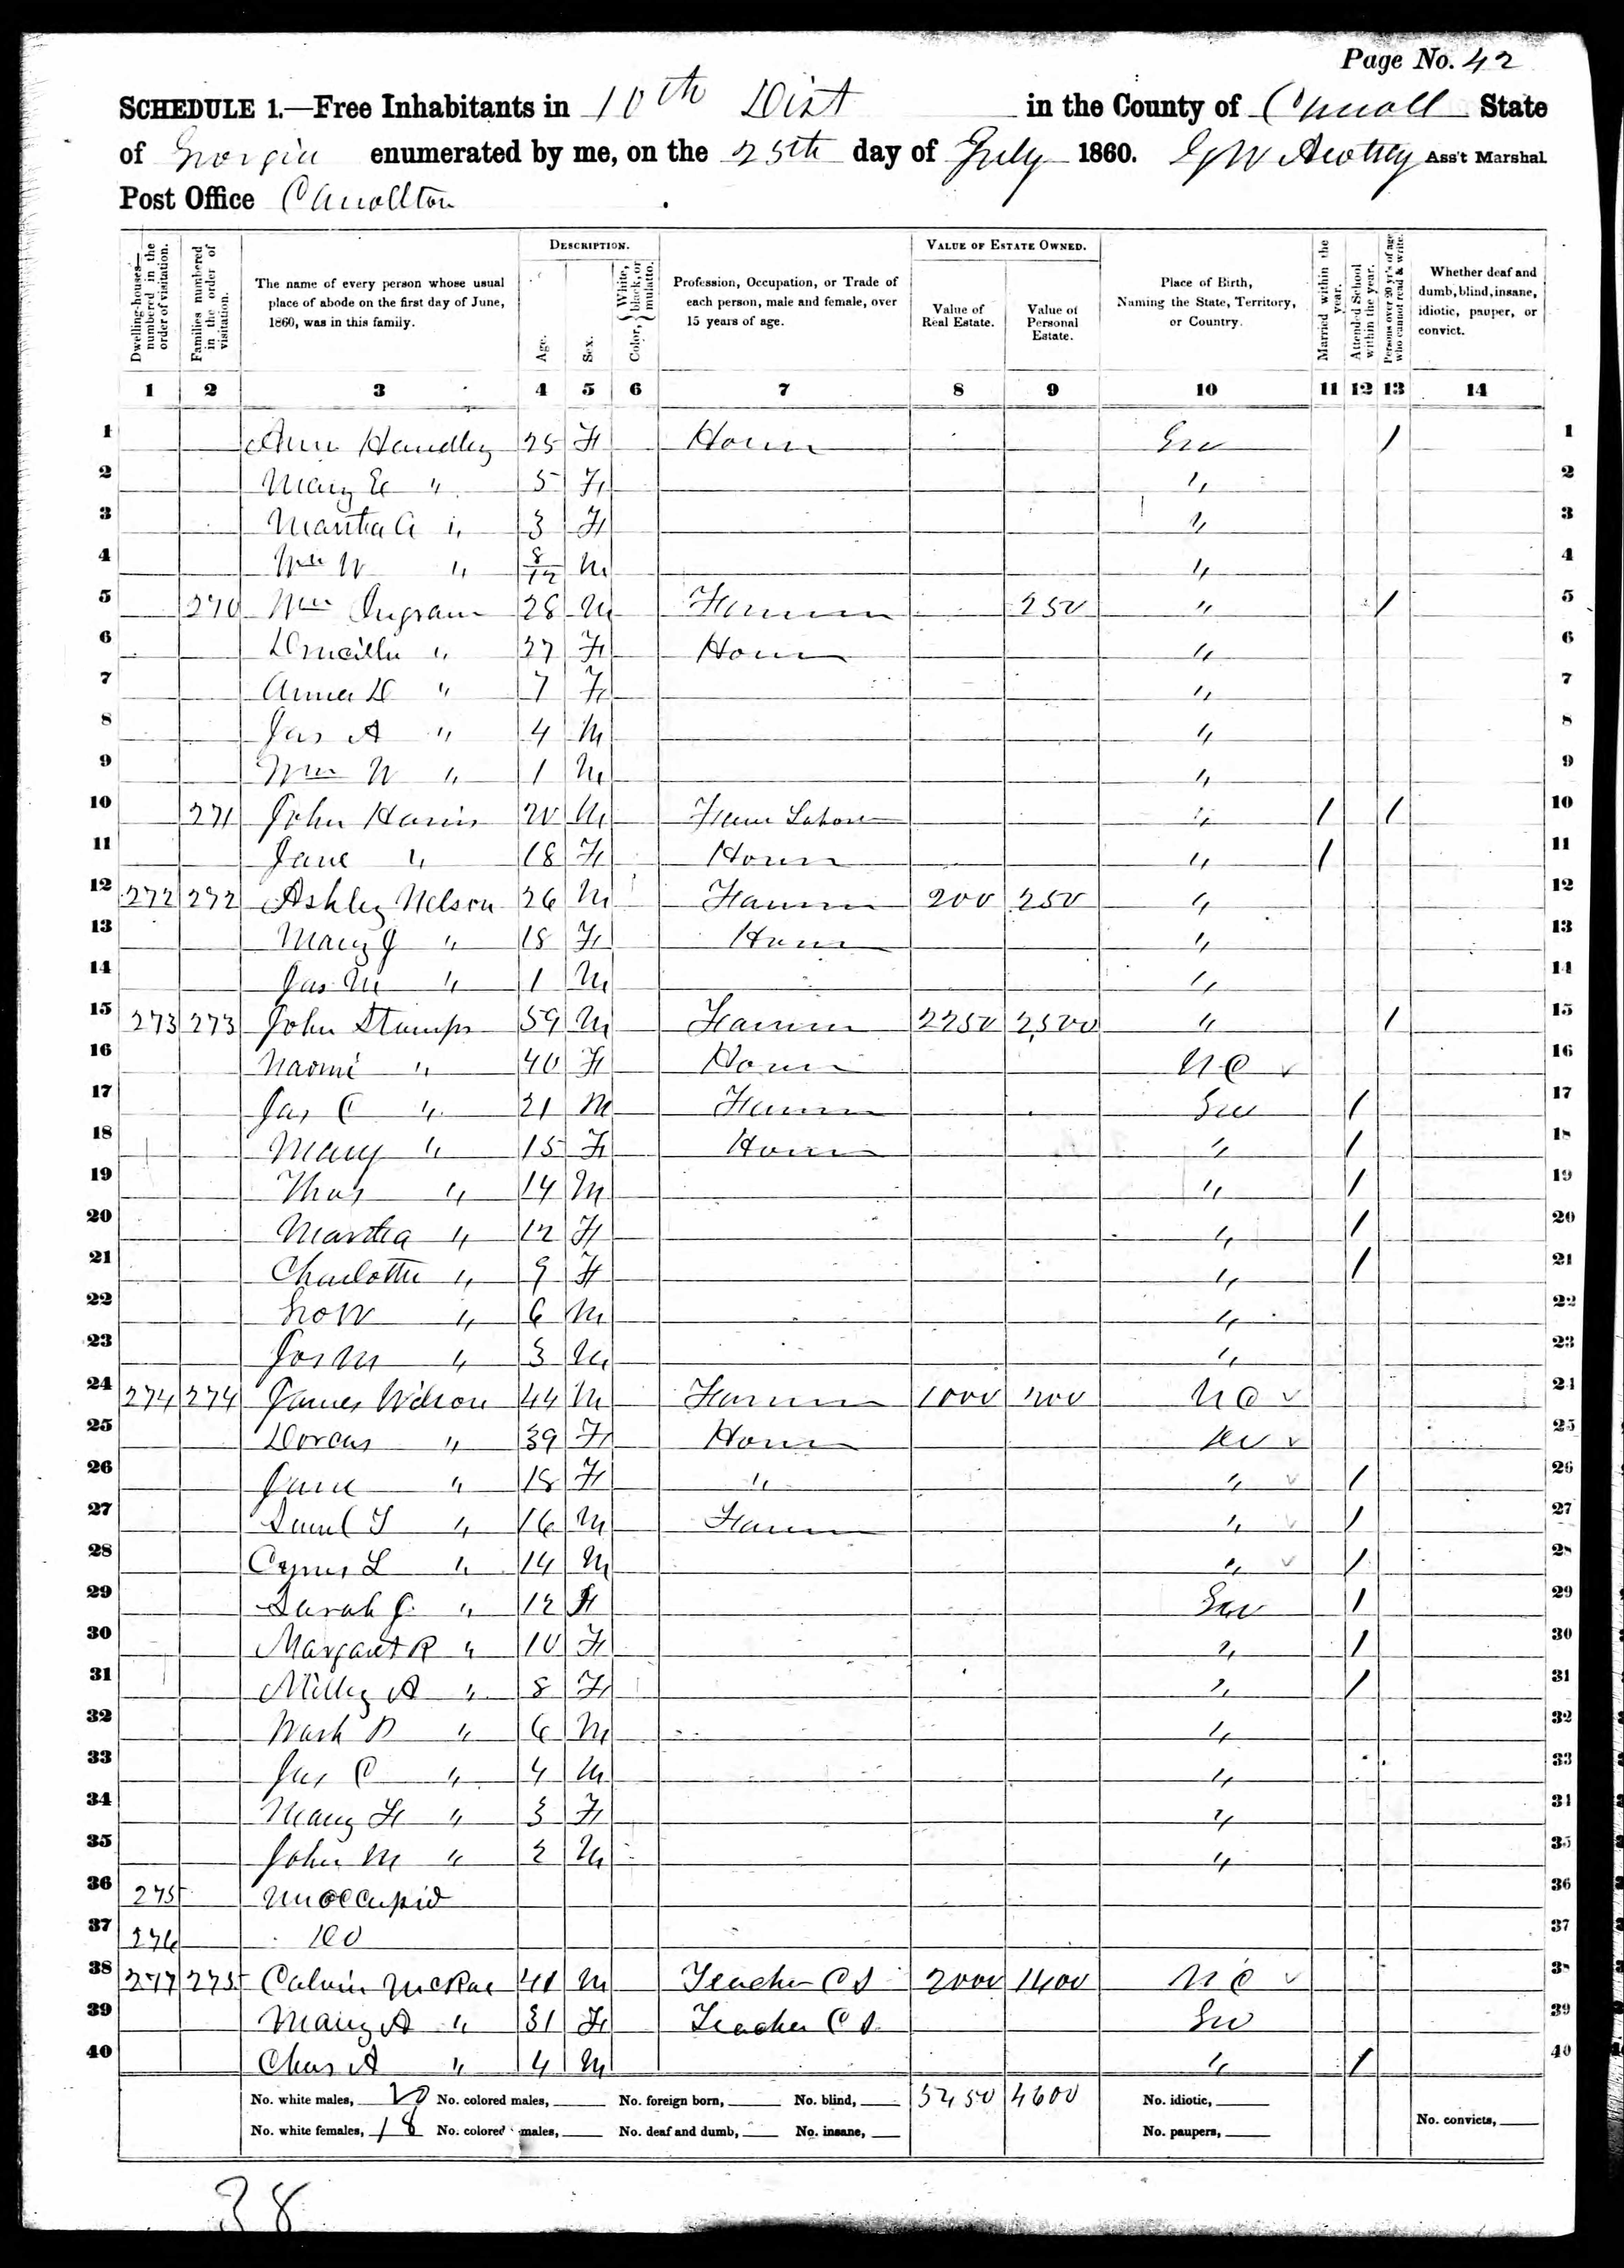 Page No. 42
SCHEDULE 1.—Free Inhabitants in 10th Dist in the County of Carroll State
of Georgia enumerated by me, on the 25th day of July 1860. G W Ass't Marshal
Post Office Carrollton
Dwelling-houses—numbered in the order of visitation.
Families numbered in the order of visitation.
The name of every person whose usual place of abode on the first day of June, 1860, was in this family.
DESCRIPTION.
Age.
Sex.
Color, { White, black, or mulatto.
Profession, Occupation, or Trade of each person, male and female, over 15 years of age.
VALUE OF ESTATE OWNED.
Value of Real Estate.
Value of Personal Estate.
Place of Birth, Naming the State, Territory, or Country.
Married within the year.
Attended School within the year.
Persons over 20 yr's of age who cannot read & write.
Whether deaf and dumb, blind, insane, idiotic, pauper, or convict.
1 2 3 4 5 6 7 8 9 10 11 12 13 14
1 Ann Handley 25 F Geo / 1
2 Mary E " 5 F " 2
3 Martha A " 3 F " 3
4 Wm W " 8/12 M " 4
5 270 Wm Ingram 28 M Farmer 250 " / 5
6 Drucilla " 27 F " 6
7 Anna D " 7 F " 7
8 Jas A " 4 M " 8
9 Wm W " 1 M " 9
10 271 John Harris 20 M Farm Labor " / / 10
11 Jane " 18 F " / 11
12 272 272 Ashley Nelson 26 M Farmer 200 250 " 12
13 Mary J " 18 F " 13
14 Jas M " 1 M " 14
15 273 273 John Stamps 59 M Farmer 2250 2500 " / 15
16 Naomi " 40 F N C 16
17 Jas C " 21 M Farmer Geo / 17
18 Mary " 15 F " / 18
19 Thos " 14 M " / 19
20 Martha " 12 F " / 20
21 Charlotte " 9 F " / 21
22 Geo W " 6 M " 22
23 Jos M " 3 M " 23
24 274 274 James Wilson 44 M Farmer 1000 200 N C 24
25 Dorcas " 39 F 25
26 Jane " 18 F " " / 26
27 Saml T " 16 M Farmer " / 27
28 Cyrus L " 14 M " / 28
29 Sarah J " 12 F Geo / 29
30 Margaret R " 10 F " / 30
31 Milley A " 8 F " / 31
32 Wash D " 6 M " 32
33 Jas C " 4 M " 33
34 Mary F " 3 F " 34
35 John M " 2 M " 35
36 275 Unoccupid 36
37 276 Do 37
38 277 275 Calvin McRae 41 M Teacher C S 2000 1400 N C 38
39 Mary A " 31 F Teacher C S Geo 39
40 Chas A " 4 M " / 40
No. white males, 20 No. colored males, No. foreign born, No. blind, 5450 4600 No. idiotic,
No. white females, 18 No. colored males, No. deaf and dumb, No. insane, No. paupers, No. convicts,
38